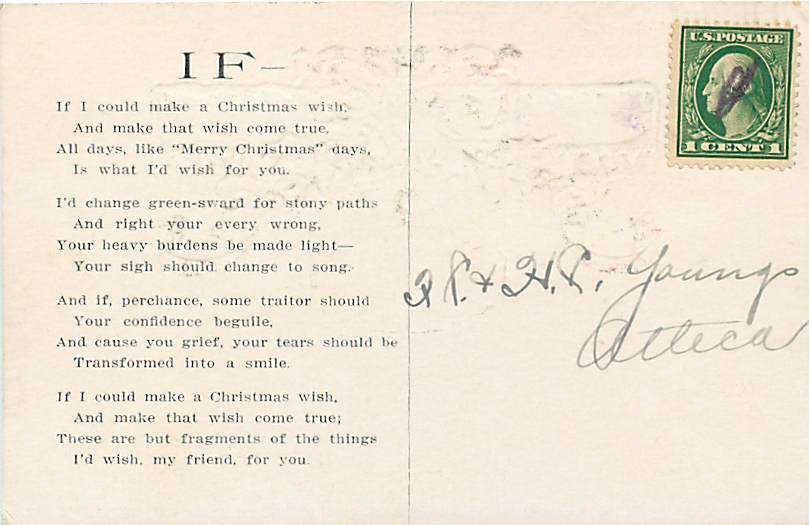 IF—
If I could make a Christmas wish,
And make that wish come true,
All days, like "Merry Christmas" days,
Is what I'd wish for you.
I'd change green-sward for stony paths
And right your every wrong,
Your heavy burdens be made light—
Your sigh should change to song.
And if, perchance, some traitor should
Your confidence beguile,
And cause you grief, your tears should be
Transformed into a smile.
If I could make a Christmas wish,
And make that wish come true;
These are but fragments of the things
I'd wish, my friend, for you.
U.S. POSTAGE
1 CENT 1
& H.P. Youngs
Attica